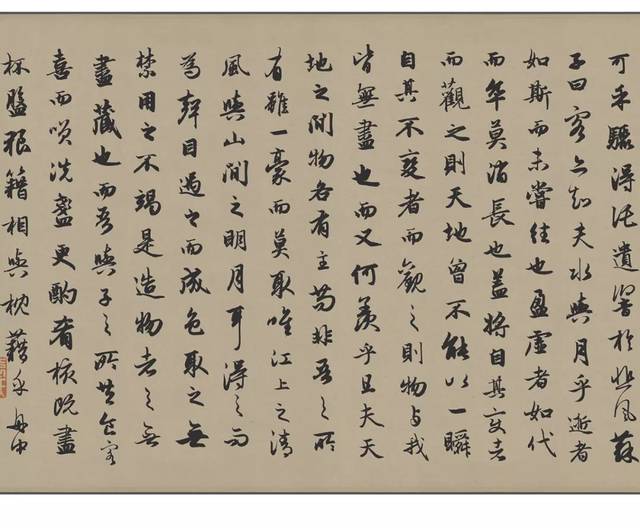 可乎驟得託遺響於悲風蘇
子曰客亦知夫水與月乎逝者
如斯而未嘗往也盈虛者如代
而卒莫消長也蓋將自其變者
而觀之則天地曾不能以一瞬
自其不變者而觀之則物与我
皆無盡也而又何羨乎且夫天
地之間物各有主苟非吾之所
有雖一豪而莫取唯江上之清
風與山間之明月耳得之而
為聲目遇之而成色取之無
禁用之不竭是造物者之無
盡藏也而吾與子之所共食客
喜而咲洗盞更酌肴核既盡
杯盤狼籍相與枕藉乎舟中